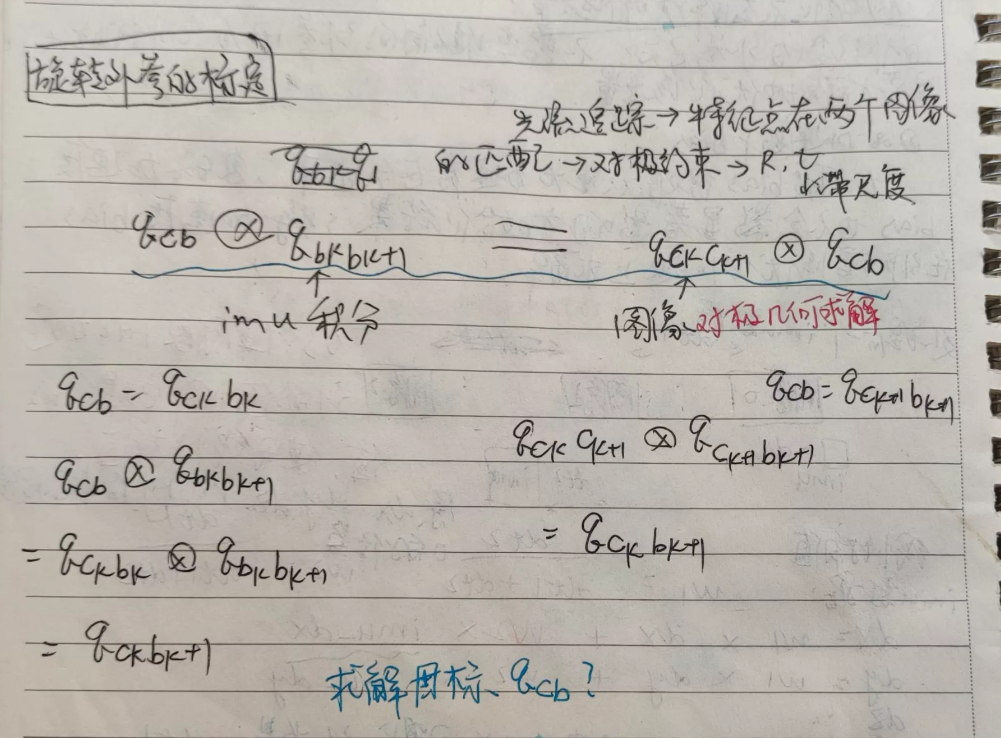 旋转外参的标定
光流追踪→特征点在两个图像
的匹配→对极约束→R,t
不带尺度
q_cb ⊗ q_bkbk+1 = q_ckck+1 ⊗ q_cb
imu积分
图像、对极几何求解
q_cb = q_ckbk
q_cb = q_ck+1bk+1
q_cb ⊗ q_bkbk+1
q_ckck+1 ⊗ q_ck+1bk+1
= q_ckbk ⊗ q_bkbk+1
= q_ckbk+1
= q_ckbk+1
求解目标、q_cb?